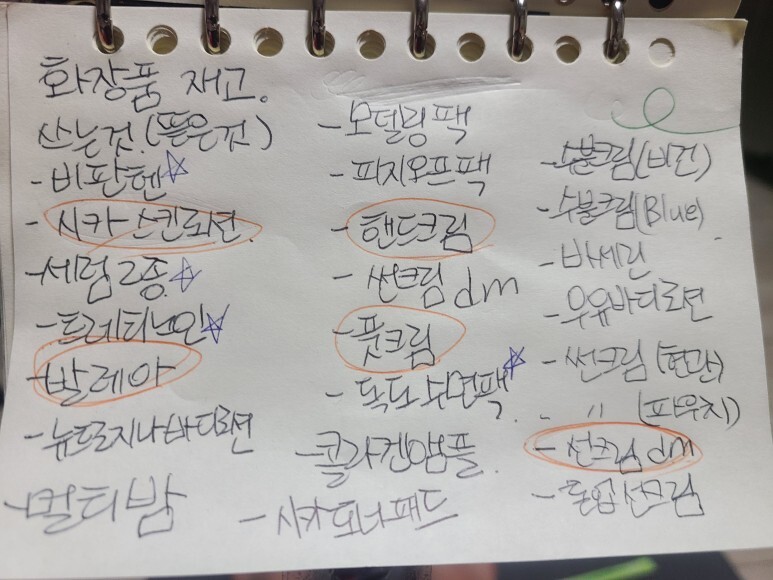 화장품 재고.
쓰는것.(뜯은것)
- 비판텐
- 시카 스킨로션.
- 세럼 2종.
- 트레티노인
- 발레아
- 뉴트로지나 바디로션
- 멀티밤
- 모델링팩
- 피지오프팩
- 핸드크림
- 썬크림 dm
- 풋크림
- 독도 수면팩.
- 콜라겐앰플.
- 시카토너패드
- 수분크림(비건)
- 수분크림(Blue)
- 바세린
- 우유바디로션
- 썬크림 (현관)
- 〃 (파우치)
- 선크림 dm
- 선크림